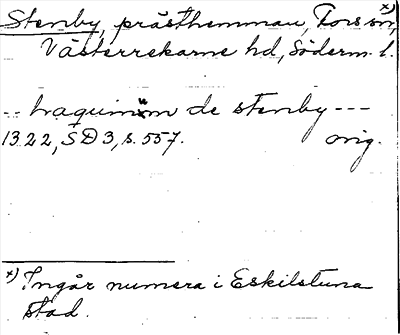 Stenby, prästhemman, Tors sn, x)
Västerrekarne hd, Söderm. l.
-- haquinum de stenby ---
1322, SD 3, s. 557. orig.
x) Ingår numera i Eskilstuna
stad.